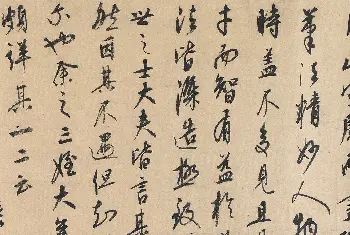 筆法精妙人物
時蓋不多見且
才而智有益於
法皆深造極致
世之士大夫皆言其
然因其不遇但知
尔也余之三姪大年
頗詳其一二云